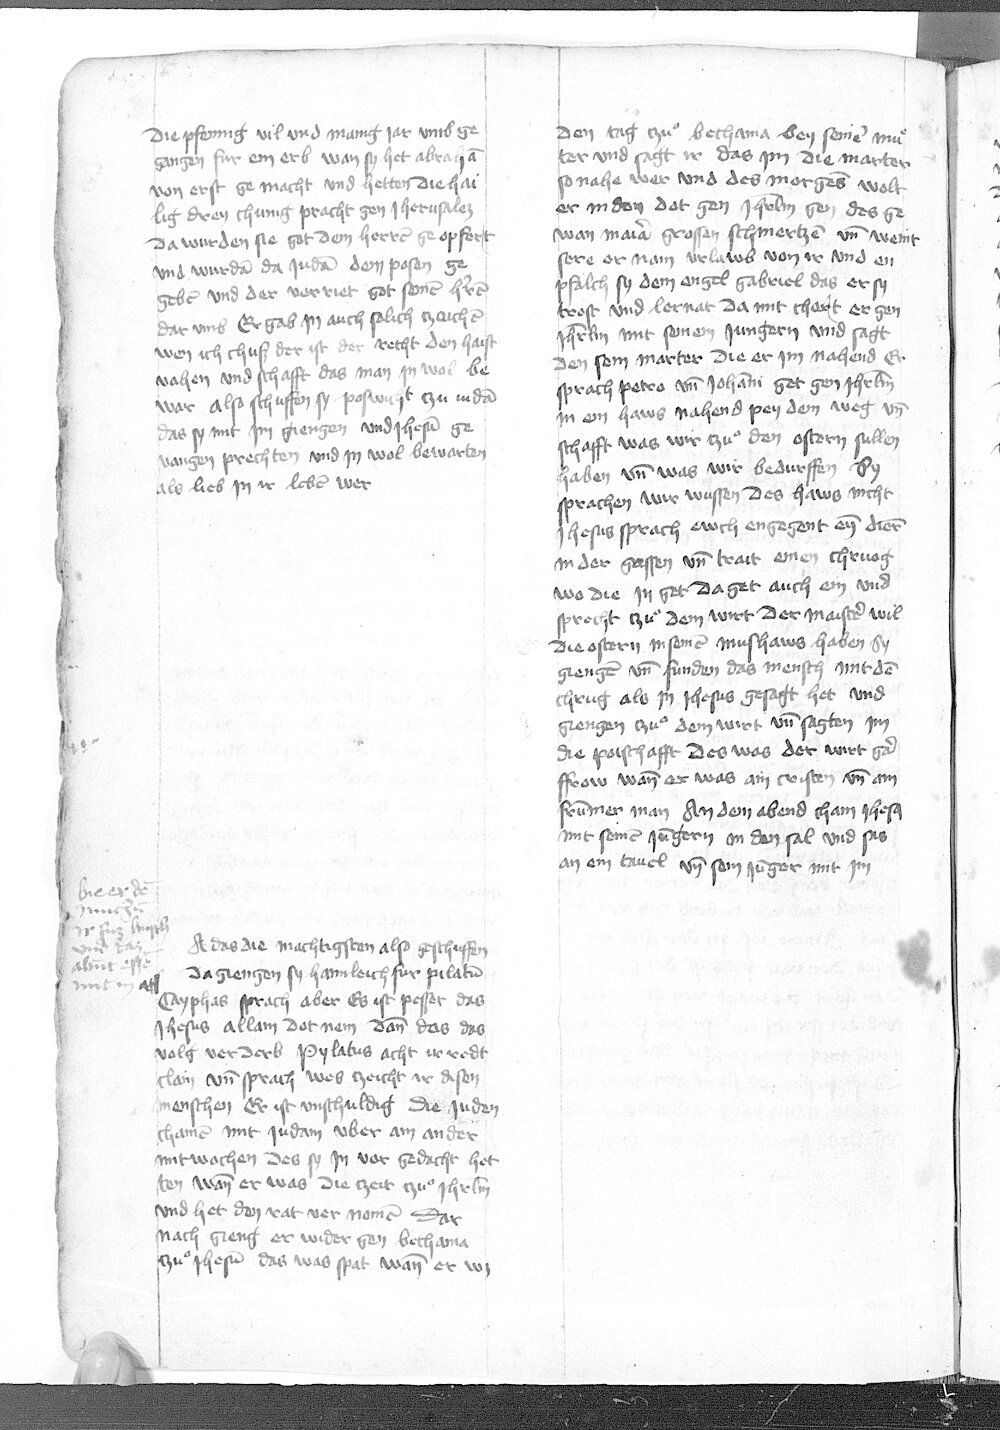 Die pfennig vil vnd manig jar vmb ge
gangen fur ein erb wan sy het abrahā
von erst ge macht vnd hetten die hai
lig dreu chunig pracht gen jherusalez
Da wurden sie got dem herrē ge opfert
vnd wurdn̄ da judā dem posen ge
gebē vnd der verriet got seinē h̄rē
dar vmb Er gab jn auch solich tzeichē
wen ich chuß der ist der recht den haist
vahen vnd schafft das man jn wol be
war also schuffen sy poswicht tzu iudā
das sy mit jm giengen vnd jhesū ge
vangen prechten vnd jn wol bewarten
als lieb jn ir lebē wer
hie er dē
mit in
A das die machtigsten also geschuffen
Da giengen sy hamleich fur pilatū
Cayphas sprach aber Es ist pesser das
jhesus allain dot nem dan̄ das das
volg verderb Pylatus acht ir redt
clain vn̄ sprach wes tzeicht ir disen
menschen Er ist vnschuldig Die juden
chamē mit judam vber am ander
mitwochen Des sy jn vor gedacht het
ten wan̄ er was die tzeit tzuͦ jhrlm̄
vnd het den rat ver nomē Dar
nach gieng er wider gen bethania
tzuͦ jhesū das was spat wan̄ er wz
den tag tzuͦ bethania bey seinē muͦ
ter vnd sagt ir das jm die marter
so nahe wer vnd des morgēs wolt
er in den dot gen jhrlm̄ gen des ge
wan maiā grossen schmertzē vn̄ weint
sere er nam vrlawb von ir vnd en
pfalch sy dem engel gabriel das er sy
trost vnd lernat Da mit chert er gen
jhrlm̄ mit seinem jungern vnd sagt
den sein marter die er jm nahend Er
sprach petro vn̄ johāni get gen jhrlm̄
in ein haws nahend pey dem weg vn̄
schafft was wir tzuͦ den ostern sullen
haben vn̄ was wir bedurffen Sy
sprachen wir wissen des haws nicht
jhesus sprach ewch engegent eȳ diern̄
in der gassen vn̄ trait einen chrueg
wo die in get Da get auch ein vnd
sprecht tzuͦ dem wirt Der maistē wil
Die ostern in seinē mushaws haben Sy
giengē vn̄ funden das mensch mit dē
chrug als jn jhesus gesagt het vnd
giengen tzuͦ dem wirt vn̄ sagten jm
die potschafft Des was der wirt gar
ffrow wan̄ er was ain cristen vn̄ ain
frūmer man An dem abend cham jhesus
mit seinē jūgern in den sal vnd sas
an ein tauel vn̄ sein jūger mit jm